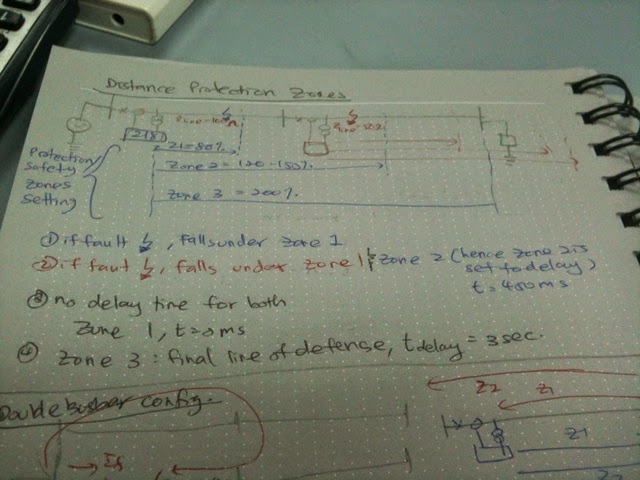 Distance Protection Zones
21/8
Z1=80%
Zone 2 = 120-150%
Zone 3 = 200%
Protection
Safety
Zones
Setting
① if fault , falls under zone 1
② if faut , falls under zone 1 & zone 2 (hence zone 2 is
set to delay)
t = 450ms
③ no delay time for both
Zone 1, t=0ms
④ Zone 3 : final line of defense, tdelay = 3sec.
Double busbar config.
Z2
Z1
Z1
Z2
If